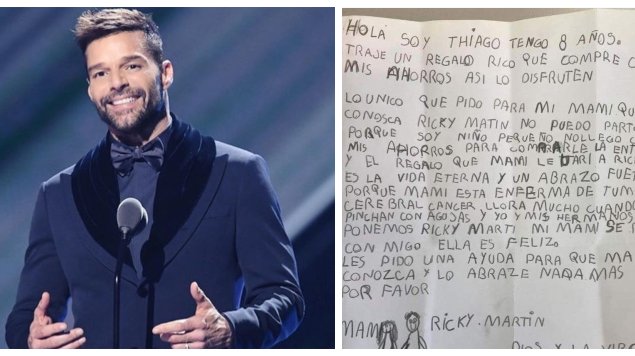 HOLA SOY THIAGO TENGO 8 AÑOS.
TRAJE UN REGALO RICO QUE COMPRE C
MIS AHORROS ASI LO DISFRUTEN
LO UNICO QUE PIDO PARA MI MAMI QU
CONOSCA RICKY MATIN NO PUEDO PARTI
PORQUE SOY NIÑO PEQUEÑO NOLLEGO C
MIS AHORROS PARA COMPRARLE LA ENT
Y EL REGALO QUE MAMI LE DARI A RIC
ES LA VIDA ETERNA Y UN ABRAZO FUE
PORQUE MAMI ESTA ENFERMA DE TUM
CEREBRAL CANCER LLORA MUCHO CUANDO
PINCHAN CON AGOSAS Y YO Y MIS HERMANOS
PONEMOS RICKY MARTI MI MAMI SE
CON MIGO ELLA ES FELIZ.
LES PIDO UNA AYUDA PARA QUE MA
CONOZCA Y LO ABRAZE NADA MAS
POR FAVOR
MAMI RICKY. MARTIN
DIOS Y LA VIRGE